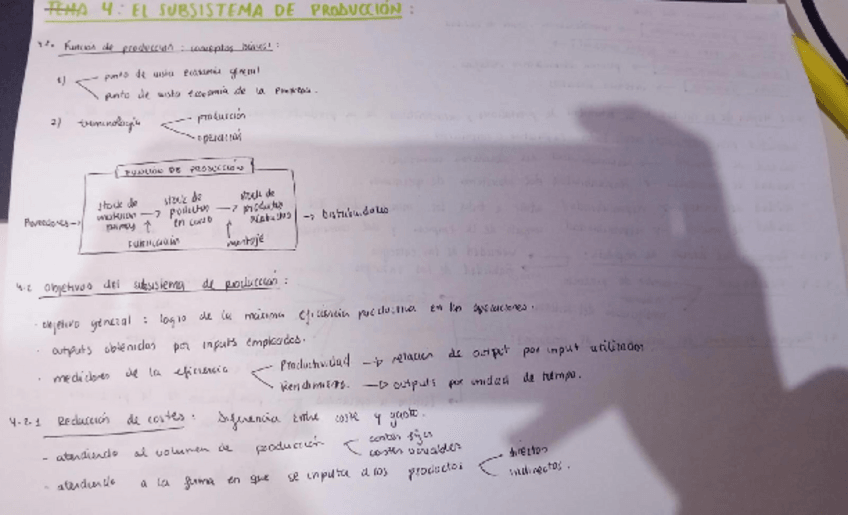 TEMA 4: EL SUBSISTEMA DE PRODUCCIÓN:
Función de producción: conceptos básicos:
1) punto de vista economía general
punto de vista economía de la empresa.
2) terminología
producción
operación
FUNCIÓN DE PRODUCCIÓN
Proveedores → stock de materias primas → stock de productos en curso → stock de productos acabados → Distribuidores
fabricación
montaje
4.2 Objetivos del subsistema de producción:
· objetivo general: logro de la máxima eficiencia productiva en las operaciones.
· outputs obtenidos por inputs empleados.
· medidores de la eficiencia
Productividad → relación de output por input utilizados
Rendimiento. → outputs por unidad de tiempo.
4.2.1 Reducción de costes: Diferencia entre coste y gasto.
- atendiendo al volumen de producción
costes fijos
costes variables
- atendiendo a la forma en que se imputa a los productos
directos
indirectos.